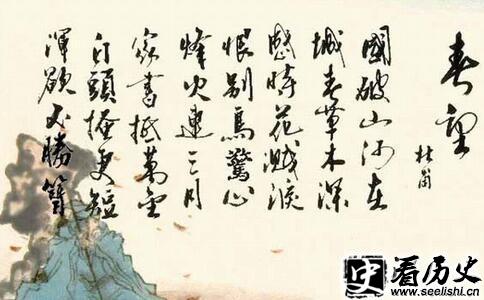 春望
杜甫
國破山河在
城春草木深
感時花濺淚
恨別鳥驚心
烽火連三月
家書抵萬金
白頭搔更短
渾欲不勝簪
史看历史
www.seelishi.cn